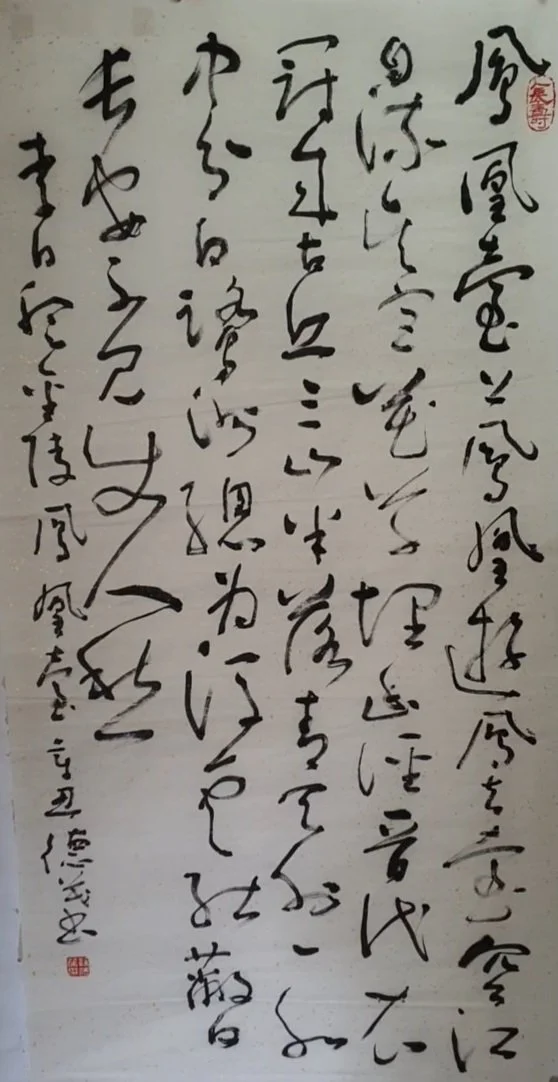 鳳凰臺上鳳凰遊鳳去臺空江
自流吳宮花草埋幽徑晉代衣
冠成古丘三山半落青天外一水
中分白鷺洲總為浮雲能蔽日
長安不見使人愁
李白登金陵鳳凰臺辛丑德茂书
人長壽